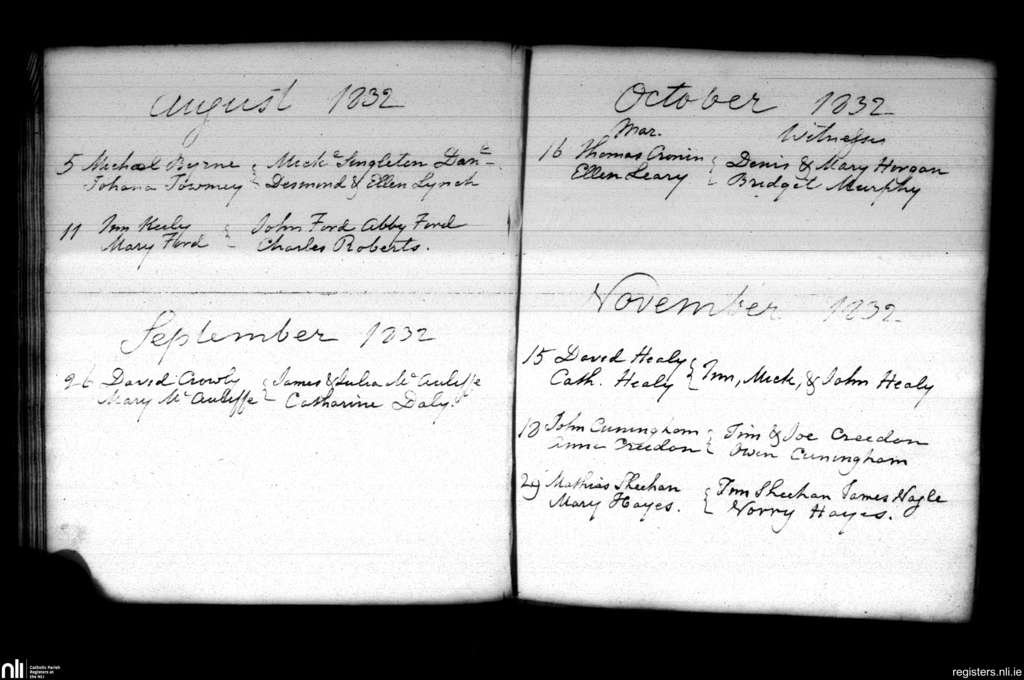 August 1832
5 Michael Byrne { Mick.l Singleton Dan.l
Johana Twomey Desmond & Ellen Lynch
11 Tim Keily { John Ford Abby Ford
Mary Ford Charles Roberts.
September 1832
David Crowly { James & Julia McAuliffe
Mary McAuliffe Catharine Daly.
October 1832
Mar. Witnesses
16 Thomas Cronin { Denis & Mary Horgan
Ellen Leary Bridget Murphy
November 1832
15 David Healy { Tim, Mick, & John Healy
Cath. Healy
18 John Cuningham { Tim & Joe Creedon
Anna Creedon Owen Cuningham
29 Mathias Sheehan { Tim Sheehan James Nagle
Mary Hayes. Norry Hayes.
nli Catholic Parish
Registers at
the NLI
registers.nli.ie